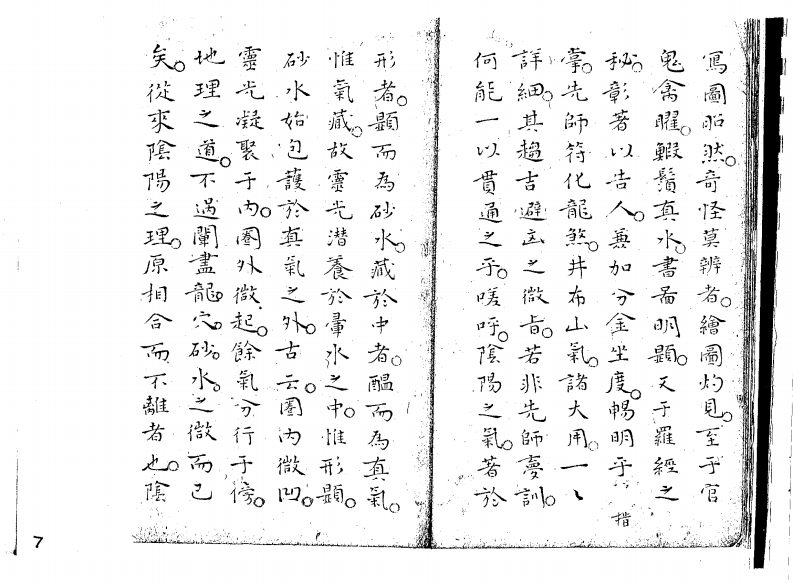 寫圖昭然。奇怪莫辨者。繪圖灼見。至于官
鬼禽曜。蝦鬚真水。書啚明顯。又于羅經之
秘。彰著以告人。兼加分金坐度。暢明乎指
掌。先師符化龍煞。井布山氣。諸大用。一一
詳細。其趨吉避凶之微旨。若非先師夢訓。
何能一以貫通之乎。嗟呼。陰陽之氣。著於
形者。顯而為砂水。藏於中者。醞而為真氣。
惟氣藏。故靈光潛養於暈水之中。惟形顯。
砂水始包護於真氣之外。古云。圈內微凹。
靈光凝聚于內。圈外微起。餘氣分行于傍。
地理之道。不過闡盡龍。穴。砂。水。之微而已
矣。從來陰陽之理。原相合而不離者也。陰
7